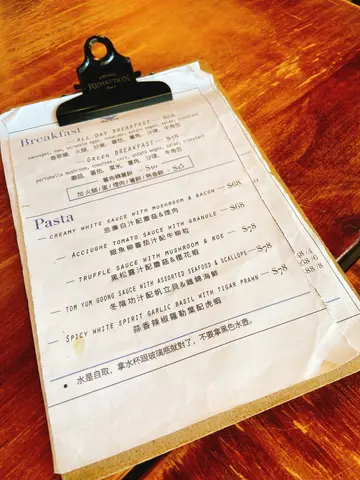 REVOLUTION
Breakfast
ALL DAY BREAKFAST
sausages, ham, scramble eggs, tomatoes, potato wedges, salad, croissant
香草腸, 火腿, 炒蛋, 蕃茄, 薯角, 沙律, 牛角包
GREEN BREAKFAST — $78
portobello mushroom, tomatoes, corn, potato wedges, salad, croissant
蘑菇, 蕃茄, 粟米, 薯角, 沙律, 牛角包
Pasta
CREAMY WHITE SAUCE WITH MUSHROOM & BACON — $68
忌廉白汁配蘑菇&煙肉
ACCIUGHE TOMATO SAUCE WITH GRANULE — $68
銀魚柳蕃茄汁配牛柳粒
TRUFFLE SAUCE WITH MUSHROOM & ROE — $78
黑松露汁配蘑菇&櫻花蝦
TOM YUM GOONG SAUCE WITH ASSORTED SEAFOOD & SCALLOPS — $78
冬陰功汁配帆立貝&雜錦海鮮
SPICY WHITE SPIRIT GARLIC BASIL WITH TIGAR PRAWN — $78
蒜香辣椒羅勒葉配虎蝦
• 水是自取, 拿水杯跟玻璃瓶就對了, 不要拿黑色水壺。